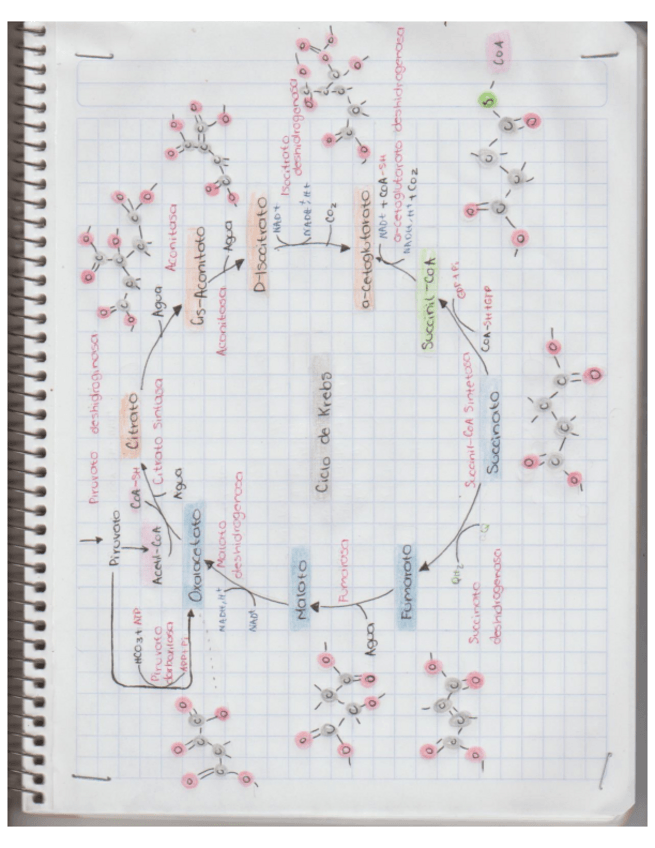 Ciclo de Krebs
Piruvato deshidroginasa
Piruvato
HCO3 + ATP
Piruvato
ADP+Pi
Acetil-CoA
CoA-SH
Citrato sintasa
Agua
Citrato
Agua
Aconitasa
Cis-Aconitato
Aconitasa
Agua
D-Isocitrato
Isocitrato
deshidrogenasa
NAD+
NADH, H+
CO2
a-Cetoglutarato
NAD+ + CoA-SH
a-cetoglutarato deshidrogenasa
NADH, H+ + CO2
Succinil-CoA
GDP+Pi
CoA-SH+GTP
Succinil-CoA Sintetasa
Succinato
Q
QH2
Succinato
deshidrogenasa
Fumarato
Agua
Fumarasa
Malato
NAD+
NADH, H+
Malato
deshidrogenasa
Oxalacetato
S
COA